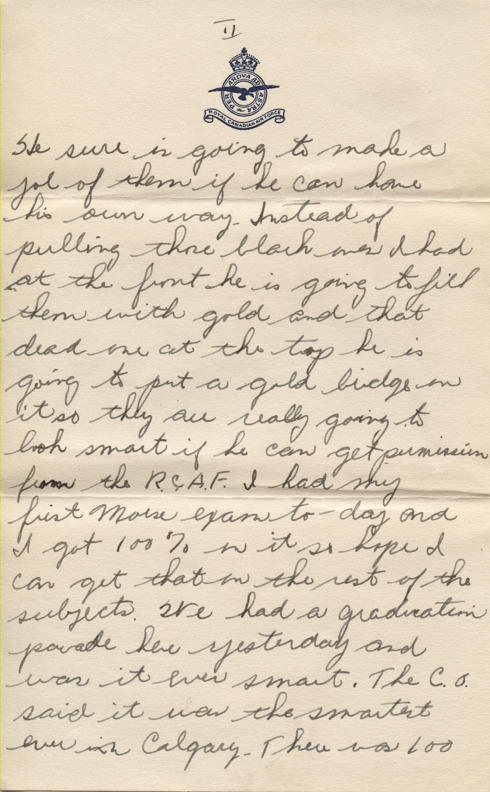 II
PER ARDVA AD ASTRA
ROYAL CANADIAN AIR FORCE
He sure is going to made a
jol of them if he can have
his own way. Instead of
pulling those black ones I had
at the front he is going to fill
them with gold and that
dead one at the top he is
going to put a gold bridge on
it so they are really going to
look smart if he can get permission
from the R.C.A.F. I had my
first Morse exam to-day and
I got 100% on it so hope I
can get that on the rest of the
subjects. We had a graduation
parade here yesterday and
was it ever smart. The C.O.
said it was the smartest
ever in Calgary. There was 100